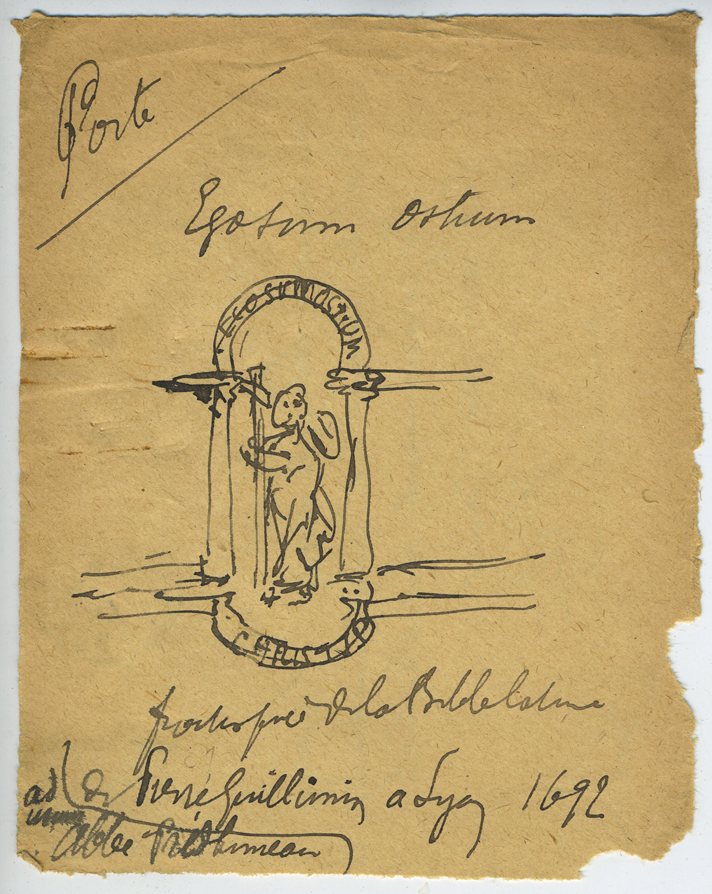 Porte
Ego sum ostium
EGO SUM OSTIUM
CHRISTUS
frontispice de la Bible latine
de Pierre Guillimin a Lyon 1692
ad
Abbé